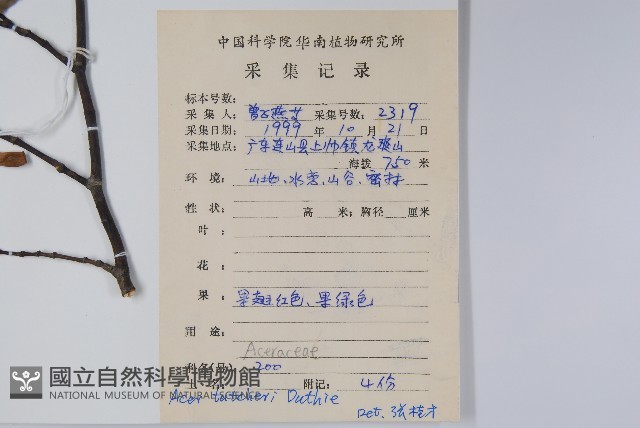 中国科学院华南植物研究所
采集记录
标本号数:
采集人: 曾飞燕 采集号数: 2319
采集日期: 1999 年 10 月 21 日
采集地点: 广东连山县上帅镇
海拨 750 米
环境: 山地、水旁、山谷、密林
性状: 高 米; 胸径 厘米
叶:
花:
果: 果翅红色、果绿色
用途:
Aceraceae
科名(号) 200
土名: 附记: 4份
Acer tutcheri Duthie
Det. 张桂才
國立自然科學博物館
NATIONAL MUSEUM OF NATURAL SCIENCE